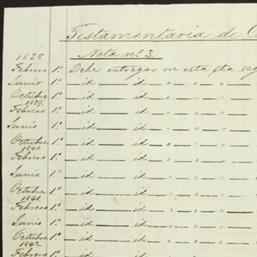 Testamentaria de
Nota nº 3.
1838
Febrero 1º Debe entregar en esta fha
Junio 1º — id — id — " — " —
Octubre 1º — id — id — " — " —
1839.
Febrero 1º — id — id — " — " —
Junio 1º — id — id — " — " —
Octubre 1º — id — id — " — " —
1840
Febrero 1º — id — id — " — " —
Junio 1º — id — id — " — " —
Octubre 1º — id — id — " — " —
1841.
Febrero 1º — id — id — " — " —
Junio 1º — id — id — " — " —
Octubre 1º — id — id — " — " —
1842.